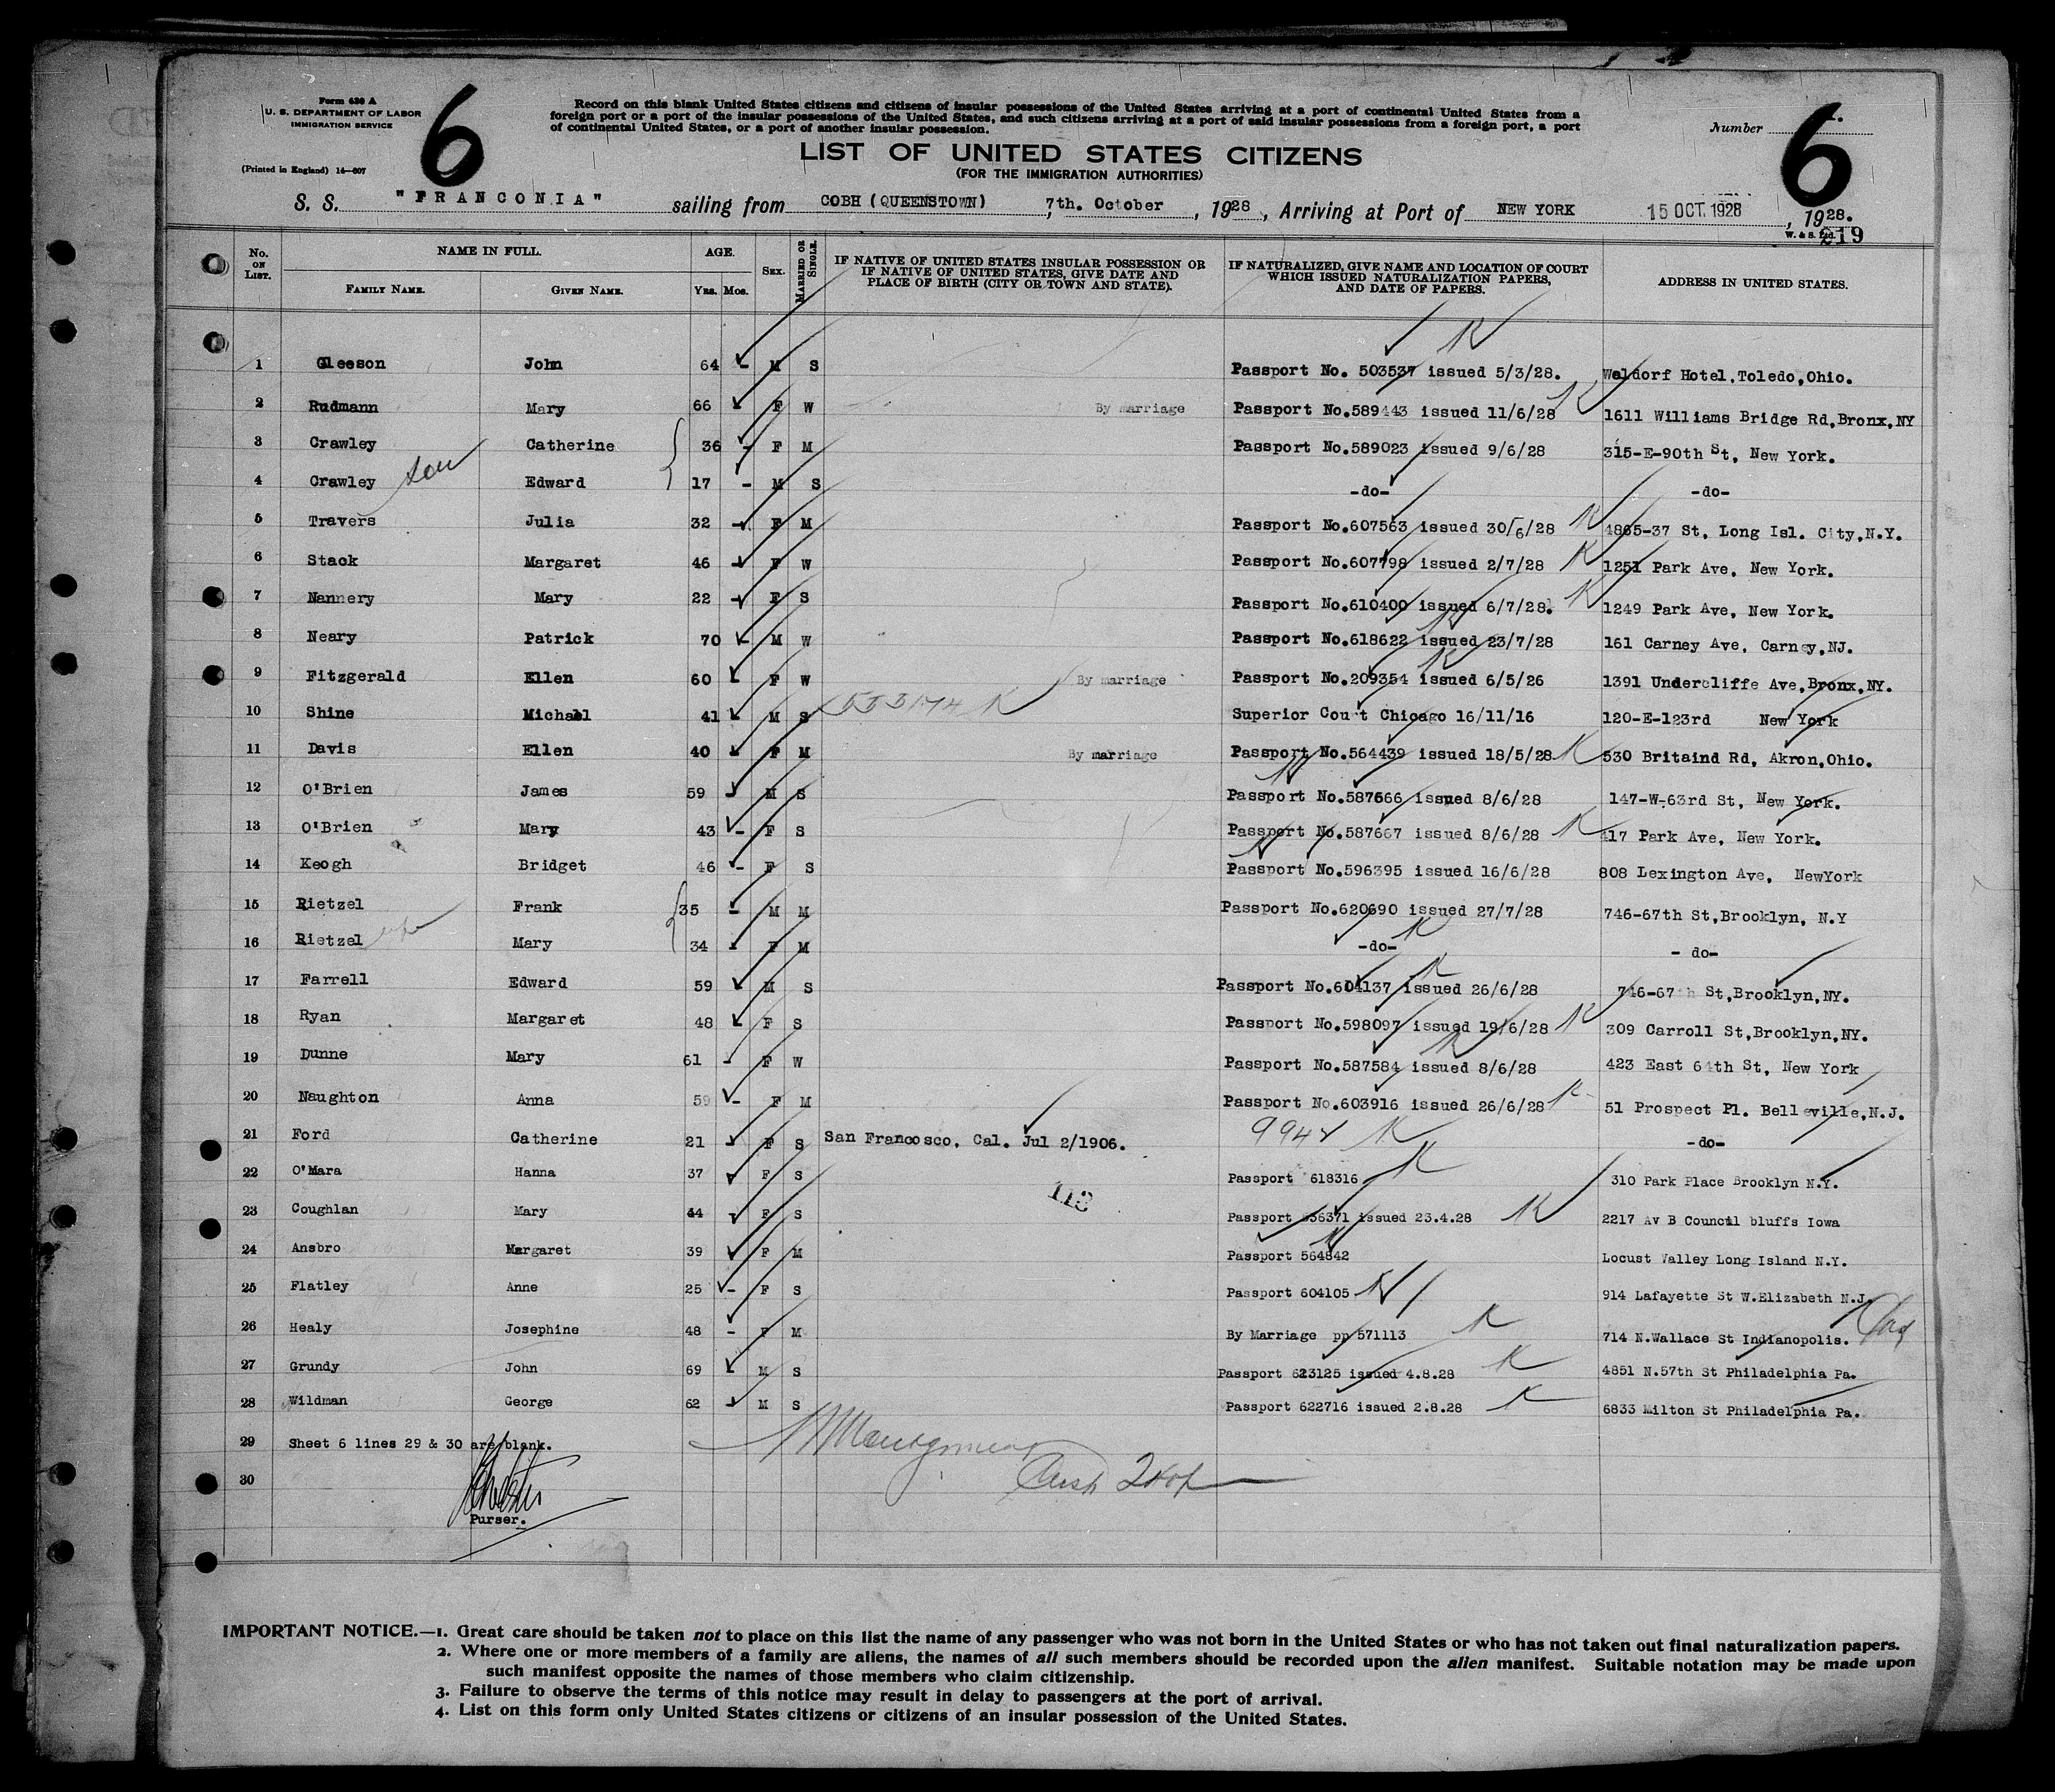 Form 630 A
U. S. DEPARTMENT OF LABOR
IMMIGRATION SERVICE
(Printed in England) 14—607
6
Record on this blank United States citizens and citizens of insular possessions of the United States arriving at a port of continental United States from a
foreign port or a port of the insular possessions of the United States, and such citizens arriving at a port of said insular possessions from a foreign port, a port
of continental United States, or a port of another insular possession.
Number
6
LIST OF UNITED STATES CITIZENS
(FOR THE IMMIGRATION AUTHORITIES)
S. S. "FRANCONIA" sailing from COBH (QUEENSTOWN) 7th. October, 1928, Arriving at Port of NEW YORK 15 OCT. 1928, 1928.
W. & S. Ltd. 219
No. ON LIST. NAME IN FULL. FAMILY NAME. GIVEN NAME. AGE. Yrs. Mos. SEX. MARRIED OR SINGLE. IF NATIVE OF UNITED STATES INSULAR POSSESSION OR IF NATIVE OF UNITED STATES, GIVE DATE AND PLACE OF BIRTH (CITY OR TOWN AND STATE). IF NATURALIZED, GIVE NAME AND LOCATION OF COURT WHICH ISSUED NATURALIZATION PAPERS, AND DATE OF PAPERS. ADDRESS IN UNITED STATES.
1 Gleeson John 64 - M S Passport No. 503537 issued 5/3/28. Waldorf Hotel,Toledo,Ohio.
2 Rudmann Mary 66 F W By marriage Passport No.589443 issued 11/6/28 1611 Williams Bridge Rd,Bronx,NY
3 Crawley Catherine 36 - F M Passport No.589023 issued 9/6/28 315-E-90th St, New York.
4 Crawley son Edward 17 - M S -do- -do-
5 Travers Julia 32 - F M Passport No.607563 issued 30/6/28 4865-37 St, Long Isl. City,N.Y.
6 Stack Margaret 46 - F W Passport No.607798 issued 2/7/28 1251 Park Ave, New York.
7 Nannery Mary 22 - F S Passport No.610400 issued 6/7/28. 1249 Park Ave, New York.
8 Neary Patrick 70 - M W Passport No.618622 issued 23/7/28 161 Carney Ave, Carney,NJ.
9 Fitzgerald Ellen 60 - F W By marriage Passport No.209354 issued 6/5/26 1391 Undercliffe Ave,Bronx,NY.
10 Shine Michael 41 M S Superior Court Chicago 16/11/16 120-E-123rd New York
11 Davis Ellen 40 F M By marriage Passport No.564439 issued 18/5/28 530 Britaind Rd, Akron,Ohio.
12 O'Brien James 59 - M S Passport No.587666 issued 8/6/28 147-W-63rd St, New York.
13 O'Brien Mary 43 - F S Passport No.587667 issued 8/6/28 417 Park Ave, New York.
14 Keogh Bridget 46 - F S Passport No.596395 issued 16/6/28 808 Lexington Ave, NewYork
15 Rietzel Frank 35 - M M Passport No.620690 issued 27/7/28 746-67th St,Brooklyn, N.Y
16 Rietzel Mary 34 - F M -do- - do-
17 Farrell Edward 59 M S Passport No.604137 issued 26/6/28 746-67th St,Brooklyn,NY.
18 Ryan Margaret 48 F S Passport No.598097 issued 19/6/28 309 Carroll St,Brooklyn,NY.
19 Dunne Mary 61 - F W Passport No.587584 issued 8/6/28 423 East 64th St, New York
20 Naughton Anna 59 - F M Passport No.603916 issued 26/6/28 51 Prospect Pl. Belleville,N.J.
21 Ford Catherine 21 - F S San Francosco, Cal. Jul 2/1906. -do-
22 O'Mara Hanna 37 F S Passport 618316 310 Park Place Brooklyn N.Y.
112
23 Coughlan Mary 44 - F S Passport 536371 issued 23.4.28 2217 Av B Council bluffs Iowa
24 Ansbro Margaret 39 F M Passport 564842 Locust Valley Long Island N.Y.
25 Flatley Anne 25 - F S Passport 604105 914 Lafayette St W.Elizabeth N.J.
26 Healy Josephine 48 - F M By Marriage pp 571113 714 N.Wallace St Indianopolis.
27 Grundy John 69 M S Passport 623125 issued 4.8.28 4851 N.57th St Philadelphia Pa.
28 Wildman George 62 - M S Passport 622716 issued 2.8.28 6833 Milton St Philadelphia Pa.
29 Sheet 6 lines 29 & 30 are blank.
30
Purser.
IMPORTANT NOTICE.—1. Great care should be taken not to place on this list the name of any passenger who was not born in the United States or who has not taken out final naturalization papers.
2. Where one or more members of a family are aliens, the names of all such members should be recorded upon the alien manifest. Suitable notation may be made upon
such manifest opposite the names of those members who claim citizenship.
3. Failure to observe the terms of this notice may result in delay to passengers at the port of arrival.
4. List on this form only United States citizens or citizens of an insular possession of the United States.